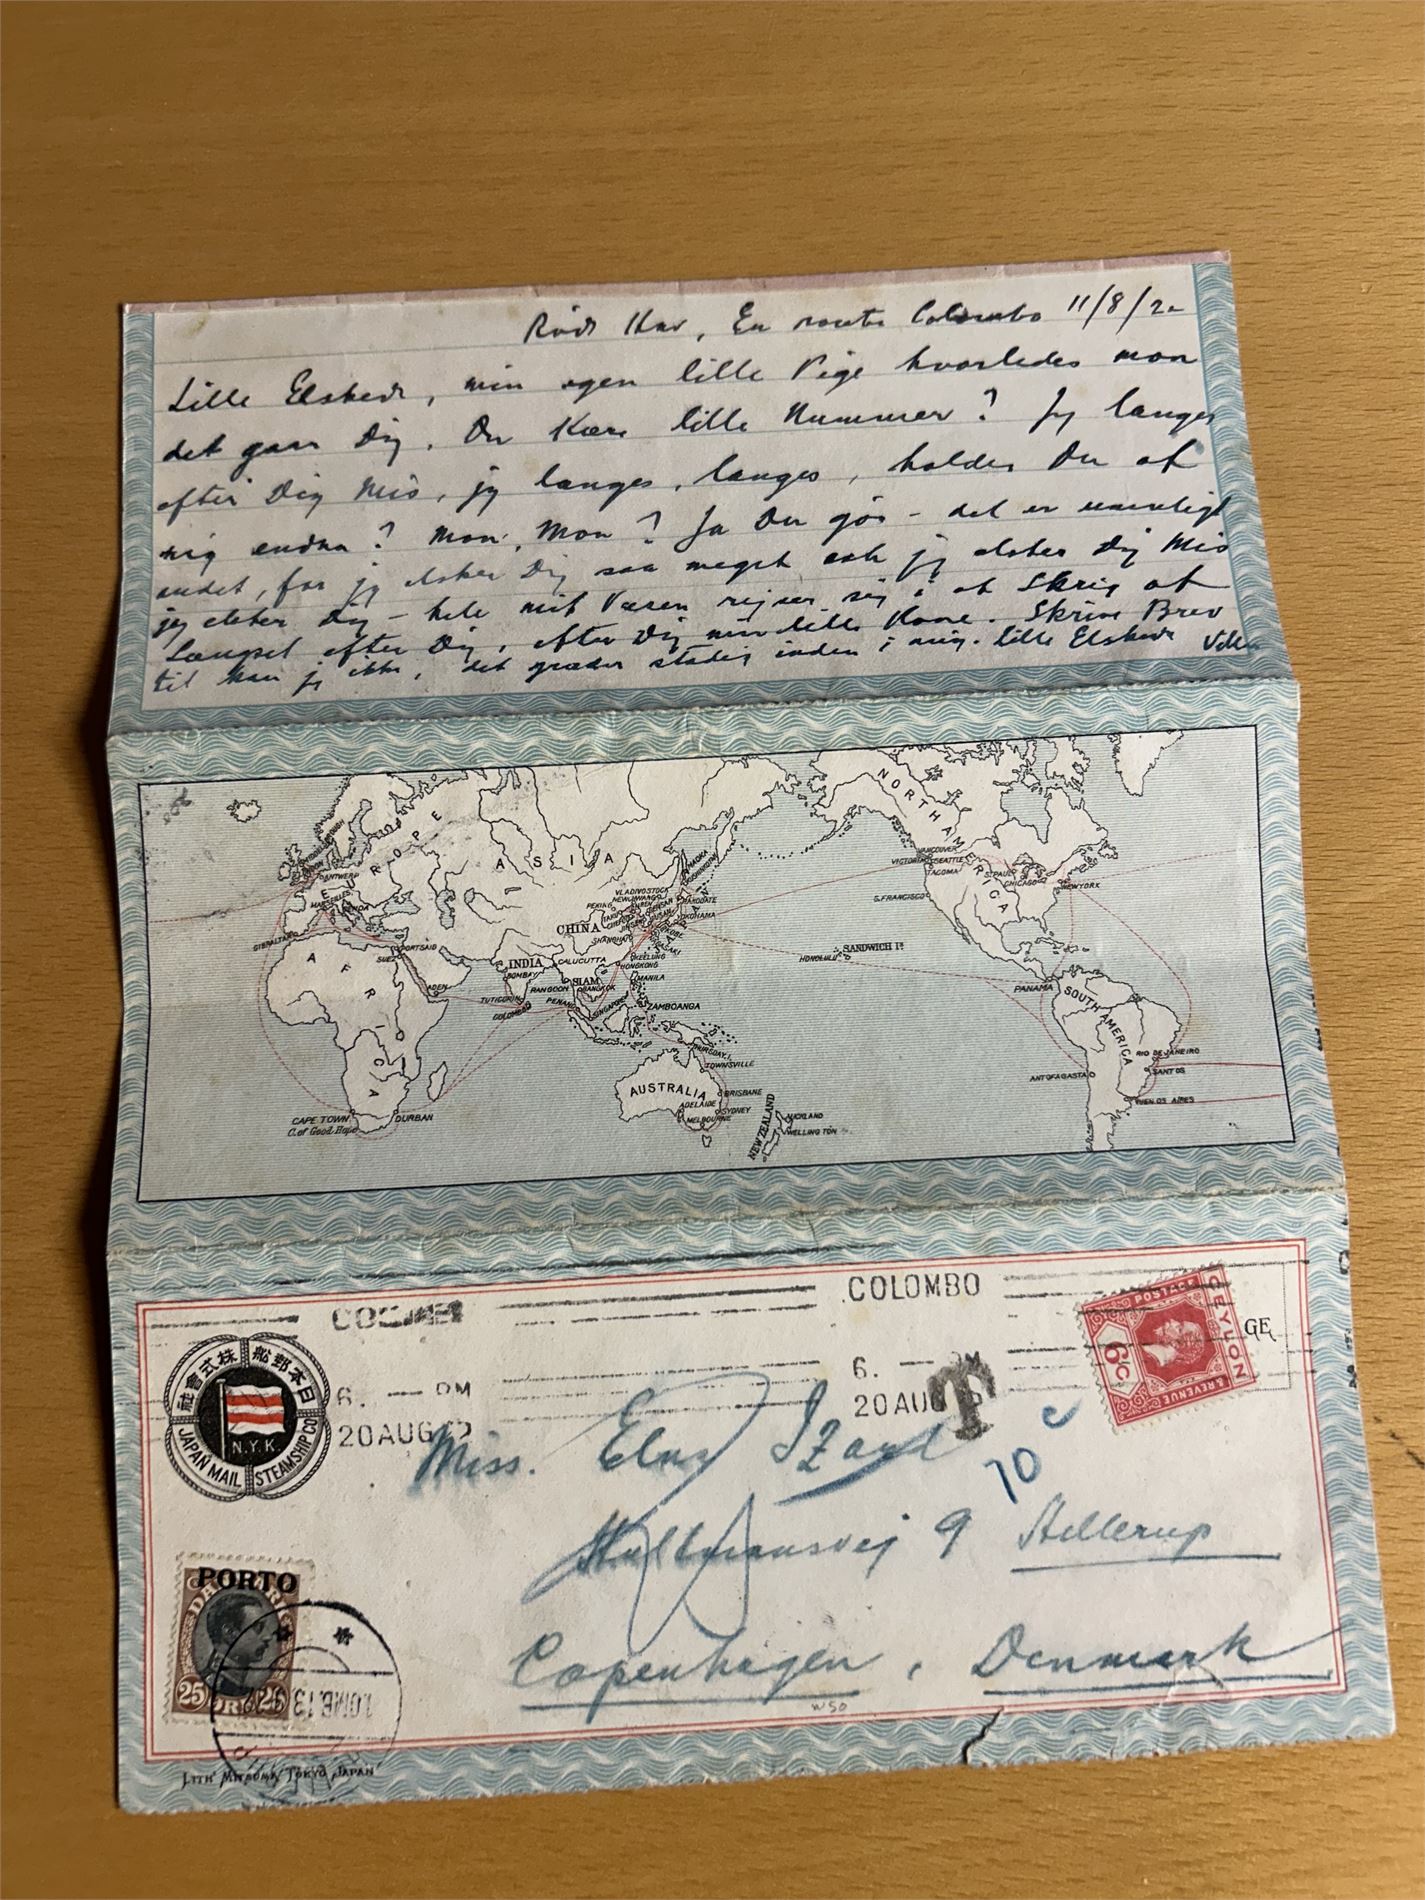 Røde Hav, En route Colombo 11/8/22
Lille Elskede, min egen lille Pige hvorledes mon
det gaar Dig, Du Kære lille Nummer? Jeg længes
efter Dig Mis, jeg længes, længes, holder Du af
mig endnu? Mon, Mon? Ja Du gør - det er umuligt
andet, for jeg elsker Dig saa meget og jeg elsker Dig Mis
jeg elsker Dig - hele mit Væsen rejser sig i et Skrig af
Længsel efter Dig, efter Dig min lille Kone. Skrive Brev
til kan jeg ikke, det græder stadig inden i mig. Lille Elskede
EUROPE
ASIA
AFRICA
NORTH AMERICA
SOUTH AMERICA
AUSTRALIA
NEW ZEALAND
CHINA
INDIA
SIAM
ANTWERP
MARSEILLES
GIBRALTAR
PORTSAID
SUEZ
ADEN
BOMBAY
CALUCUTTA
RANGOON
BANGKOK
TUTICORIN
COLOMBO
PENANG
SINGAPORE
VLADIVOSTOCK
NEWCHWANG
PEKING
SHANGHAI
HAKODATE
YOKOHAMA
KOBE
NAGASAKI
KEELUNG
HONGKONG
MANILA
ZAMBOANGA
THURSDAY I.
TOWNSVILLE
BRISBANE
SYDNEY
ADELAIDE
MELBOURNE
AUCKLAND
WELLINGTON
CAPE TOWN
C. of Good Hope
DURBAN
HONOLULU
SANDWICH Is
VANCOUVER
VICTORIA
SEATTLE
TACOMA
S.FRANCISCO
ST.PAUL
CHICAGO
NEWYORK
PANAMA
RIO DE JANEIRO
SANTOS
ANTOFAGASTA
BUENOS AIRES
COLOMBO
6. — PM
20 AUG
6. — PM
20 AUG
CEYLON
POSTAGE
& REVENUE
6c
GE
T
日本郵船株式會社
N.Y.K.
JAPAN MAIL STEAMSHIP CO
Miss.
10 c
9 Hellerup
Copenhagen, Denmark
W50
PORTO
DANMARK
25 ØRE 25
LITH MITSUMA TOKYO JAPAN